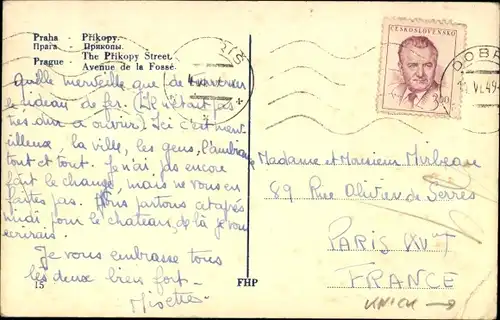 Praha - Příkopy.
Прага - Приконы.
Prague - The Příkopy Street.
Avenue de la Fossé.
ČESKOSLOVENSKO
3,00
DOBŘ
VI. 49
Quelle merveille que de traverser
le rideau de fer. (Ce n'était pas
très dur à ouvrir) Ici c'est merveilleux,
la ville, les gens, l'ambiance
tout et tout. Je n'ai pas encore
fait le change, mais ne vous en
faites pas. Nous partons cet après
midi pour le chateau, de là je vous
écrirais.
Je vous embrasse tous
les deux bien fort -
Madame et Monsieur Mirbeau
89 Rue Olivier de Serres
PARIS XV
FRANCE
15
FHP
KNICK